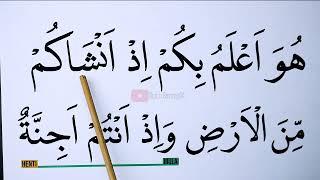 هُوَ اَعْلَمُ بِكُمْ اِذْ اَنْشَاَكُمْ
مِّنَ الْاَرْضِ وَاِذْ اَنْتُمْ اَجِنَّةٌ
HENTI